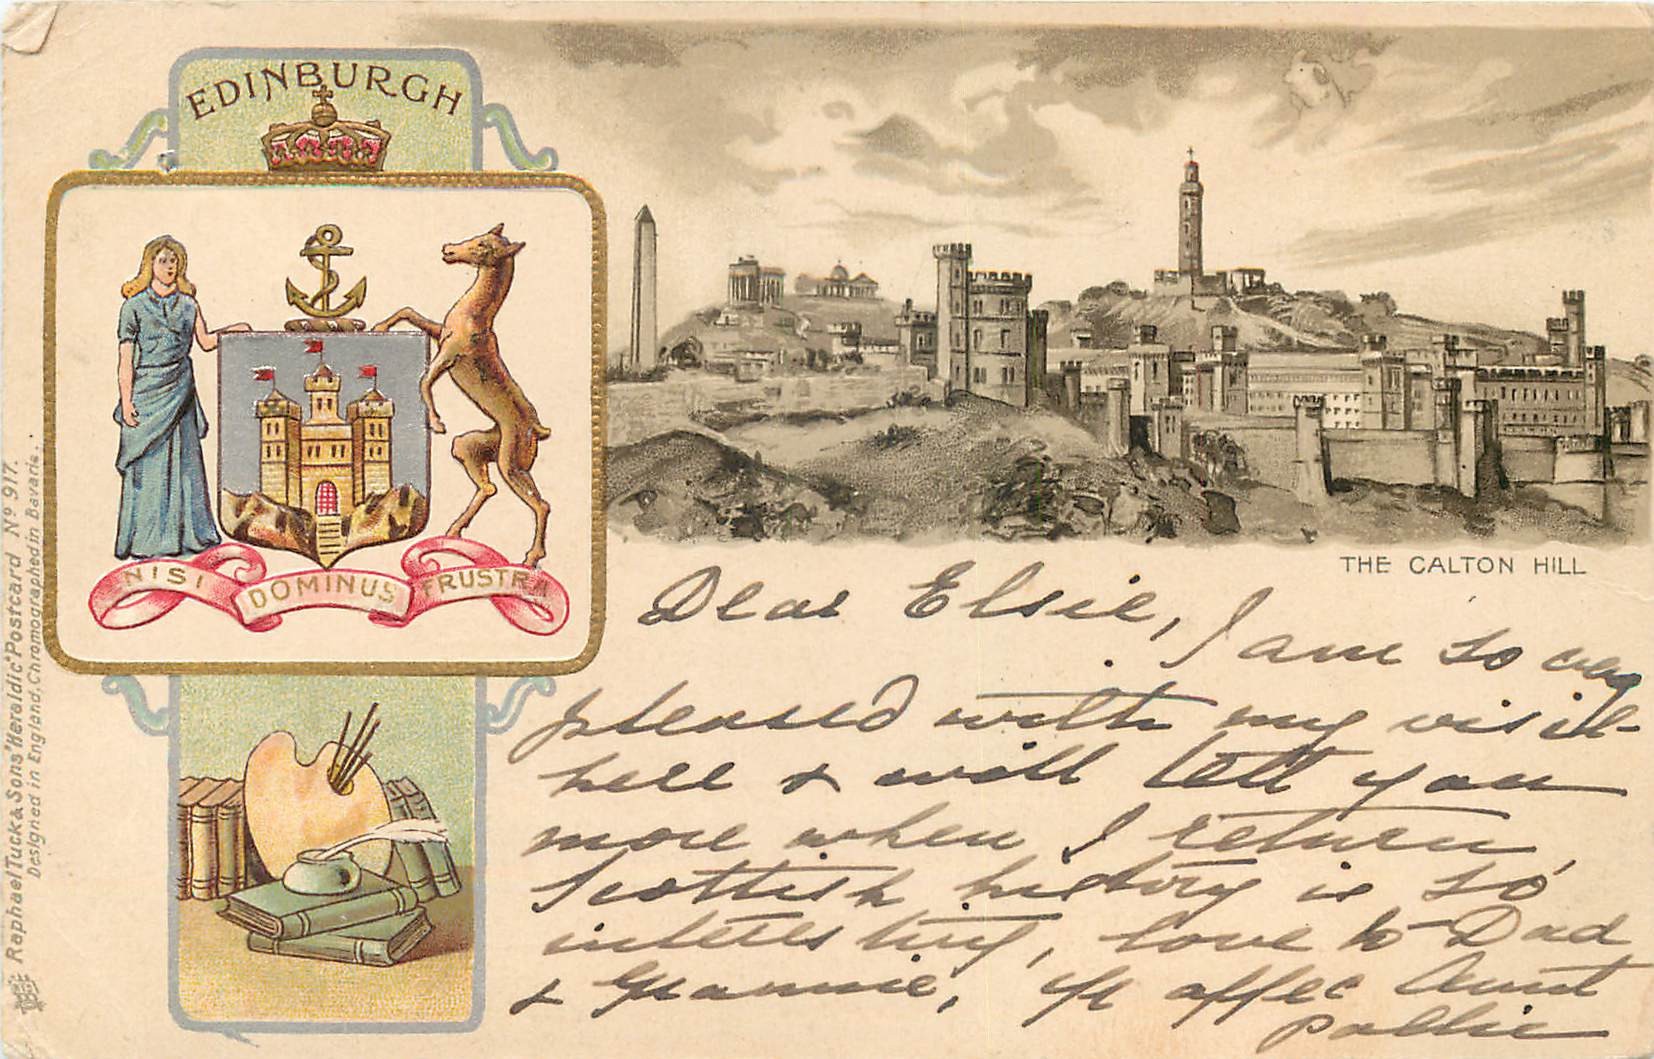 EDINBURGH
NISI DOMINUS FRUSTRA
THE CALTON HILL
Dear Elsie,
I am so very
pleased with my visit
here & will tell you
more when I return,
Scottish history is so
interesting, love to Dad
& Grannie, Yr affec Aunt
Pollie
Raphael Tuck & Sons' "Heraldic" Postcard Nº 917.
Designed in England, Chromographed in Bavaria.